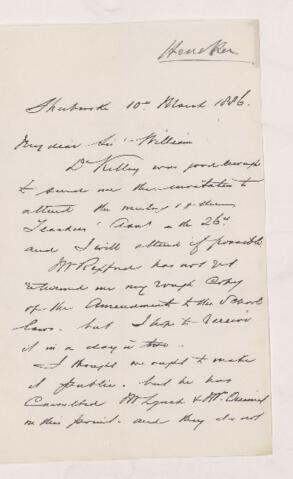 Heneker
Sherbrooke 10th March 1886.
My dear Sir William
Dr Kelley was good enough
to send me the invitation to
attend the meeting of the
Teachers' Assn on the 26th
and I will attend if possible
Mr Rexford has not yet
returned me my rough Copy
of the Amendment to the School
laws. but I hope to receive
it in a day or two.
I thought we ought to make
it public. but he has
Consulted Mr Lynch & Mr Ouimet
on this point. and they do not